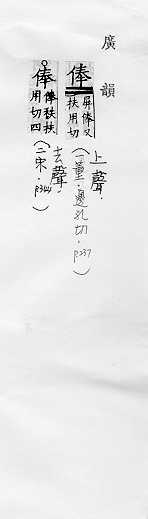 廣韻
俸 屏俸又扶用切
上聲.
(一董.邊孔切.p237)
俸 俸秩扶用切四
去聲.
(二宋.p344)